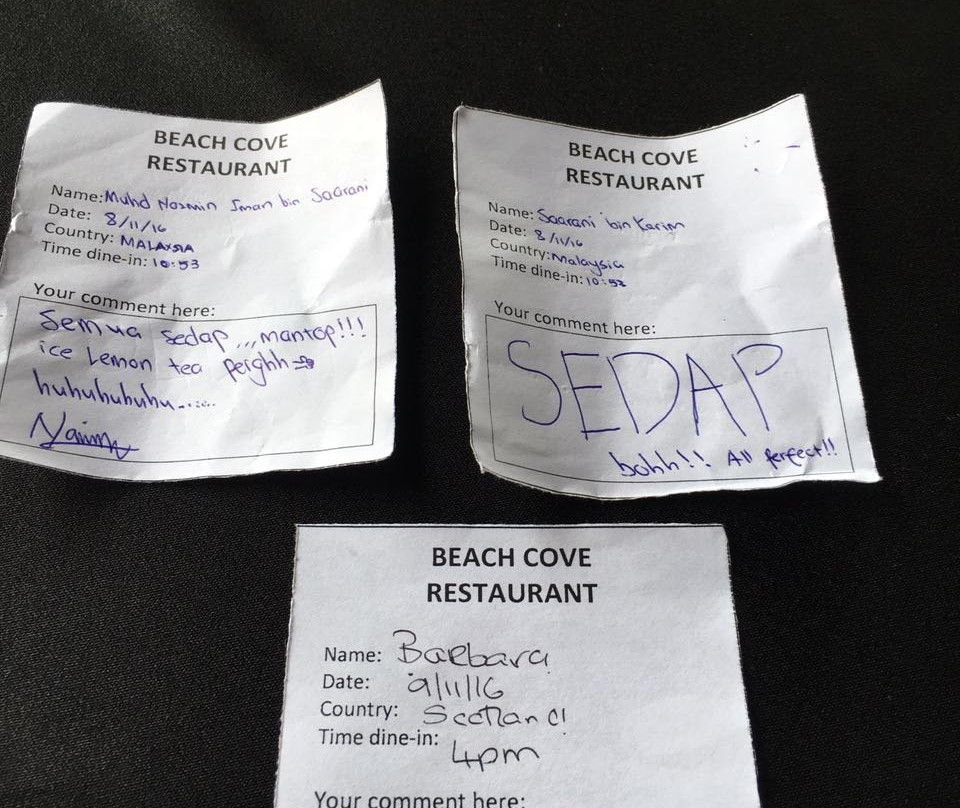 BEACH COVE
RESTAURANT
Name: Muhd Nazmin Iman bin Saarani
Date: 8/11/16
Country: MALAYSIA
Time dine-in: 10:53
Your comment here:
Semua sedap,,,mantop!!!
ice Lemon tea perghh
huhuhuhuhu......
BEACH COVE
RESTAURANT
Name: Saarani bin Karim
Date: 8/11/16
Country: Malaysia
Time dine-in: 10:52
Your comment here:
SEDAP
bohh!! All perfect!!
BEACH COVE
RESTAURANT
Name: Barbara
Date: 9/11/16
Country: Scotland
Time dine-in: 4pm
Your comment here: